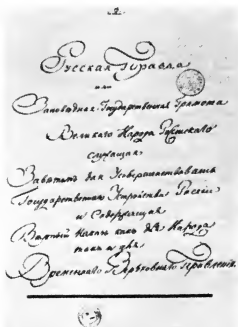 2.
Русская Правда
или
Заповѣдная Государственная Грамота
Великаго Народа Россійскаго
служащая
Завѣтомъ для Усовершенствованія
Государственнаго Устройства Россіи
и Содержащая
Вѣрный Наказъ какъ для Народа
такъ и для
Временнаго Верховнаго Правленія